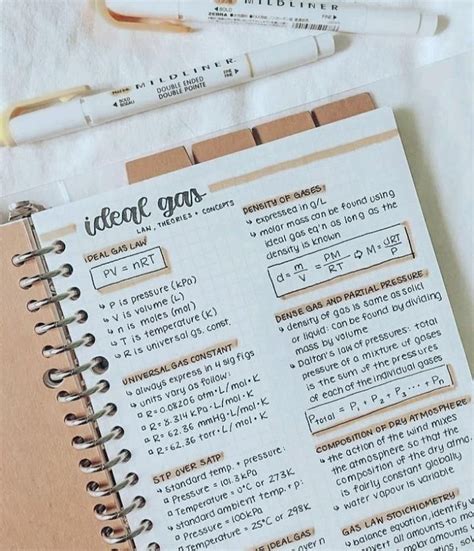 BOLD
ZEBRA
MILDLINER
FINE
MILDLINER
DOUBLE ENDED
DOUBLE POINTE
BOLD
FINE
ideal gas
LAW, THEORIES + CONCEPTS
IDEAL GAS LAW
PV = nRT
↳ P is pressure (kPa)
↳ V is volume (L)
↳ n is moles (mol)
↳ T is temperature (K)
↳ R is universal gas. const.
UNIVERSAL GAS CONSTANT
↳ always express in 4 sig figs
↳ units vary as follow:
R= 0.08206 atm·L/mol·K
R= 8.314 kPa·L/mol·K
R= 62.36 mmHg·L/mol·K
R= 62.36 torr·L/mol·K
STP OVER SATP
↳ standard temp. + pressure:
Pressure = 101.3kPa
Temperature = 0°C or 273K
↳ standard ambient temp. + p:
Pressure = 100kPa
Temperature = 25°C or 298K
IDEAL GAS
DENSITY OF GASES
↳ expressed in g/L
↳ molar mass can be found using
ideal gas eq'n as long as the
density is known
d = m/V = PM/RT ⇨ M = dRT/P
DENSE GAS AND PARTIAL PRESSURE
↳ density of gas is same as solid
or liquid: can be found by dividing
mass by volume
↳ Dalton's law of pressures: total
pressure of a mixture of gases
is the sum of the pressures
of each of the individual gases
Ptotal = P1 + P2 + P3 ... + Pn
COMPOSITION OF DRY ATMOSPHERE
↳ the action of the wind mixes
the atmosphere so that the
composition of the dry atmo
is fairly constant globally
↳ water vapour is variable
GAS LAW STOICHIOMETRY
↳ balance equation, identify